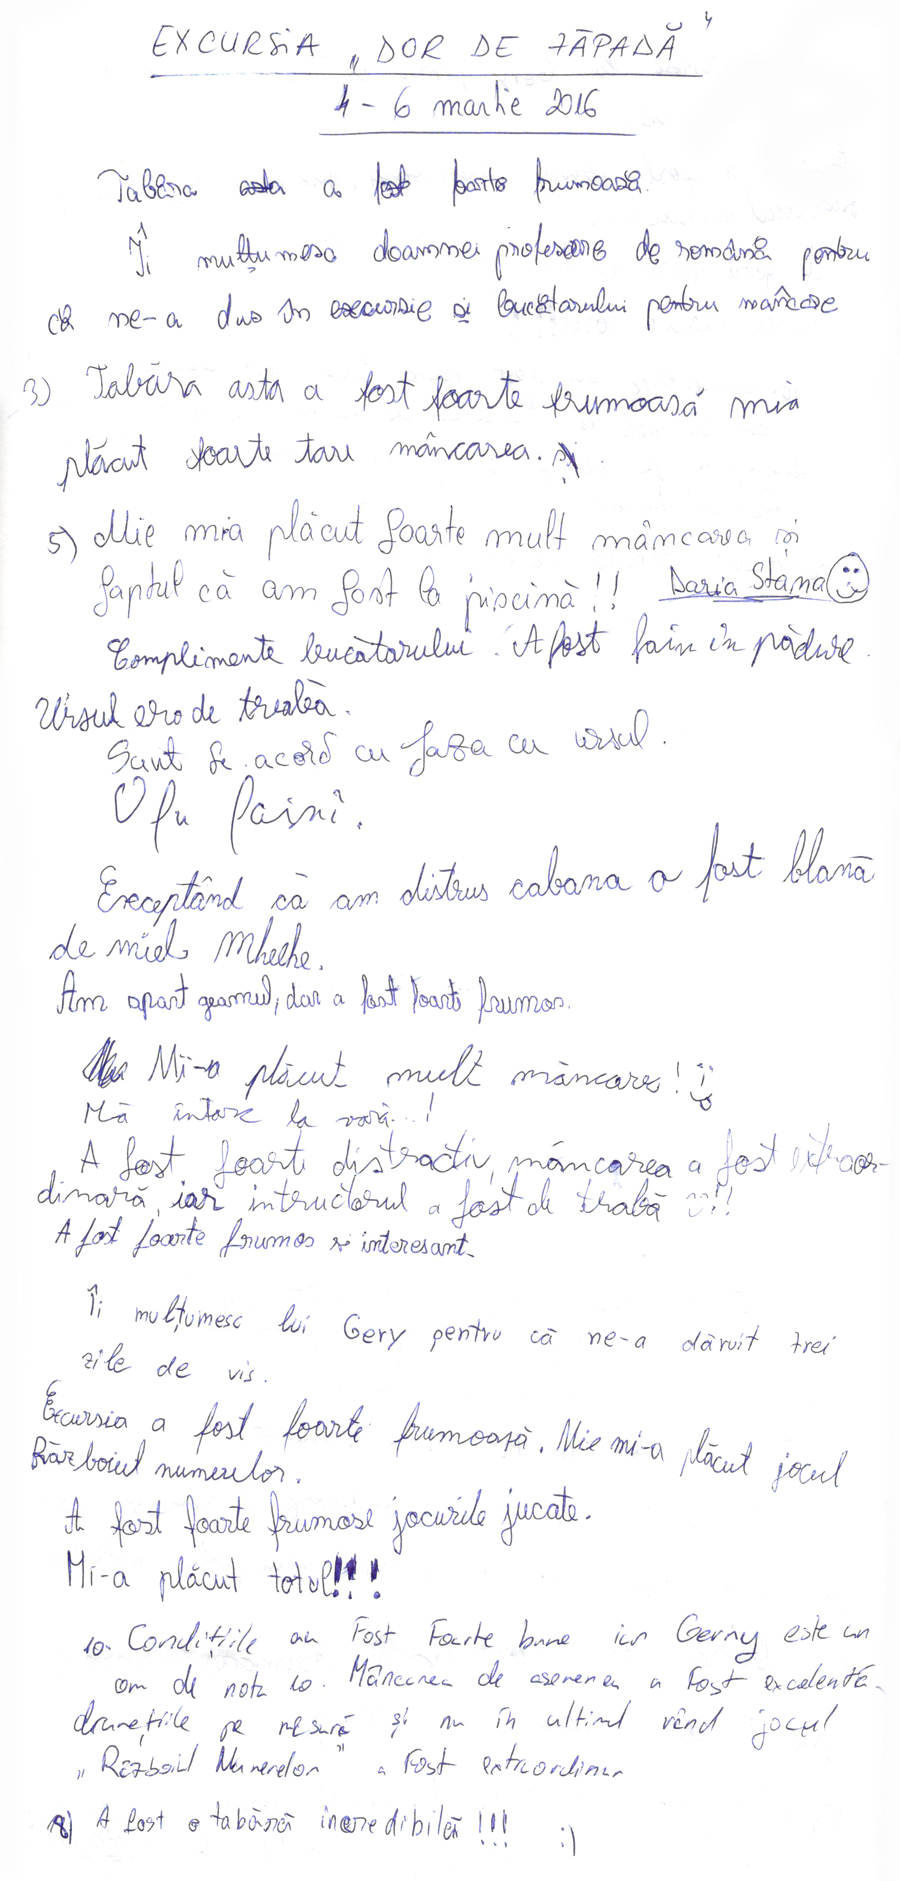 EXCURSIA „DOR DE ZĂPADĂ"
4 - 6 martie 2016
Tabăra asta a fost foarte frumoasă.
Îi mulțumesc doamnei profesoare de română pentru
că ne-a dus în excursie și bucătarului pentru mâncare
3) Tabăra asta a fost foarte frumoasă mia
plăcut foarte tare mâncarea.
5) Mie mia plăcut foarte mult mâncarea și
faptul că am fost la piscină!! Daria Stana
Complimente bucătarului. A fost fain în pădure.
Ursul ero de treabă.
Sunt de acord cu faza cu ursul.
Exceptând că am distrus cabana a fost blană
de miel. Mhehe.
Am spart geamul, dar a fost foarte frumos.
Mi-a plăcut mult mâncare! :)
Mă întorc la vară...!
A fost foarte distractiv, mâncarea a fost extraor-
dinară, iar intructorul a fost de trabă !!
A fost foarte frumos si interesant.
Îi mulțumesc lui Gery pentru că ne-a dăruit trei
zile de vis.
Excursia a fost foarte frumoasă. Mie mi-a plăcut jocul
Războiul numerelor.
A fost foarte frumose jocurile jucate.
Mi-a plăcut totul!!!
10. Condițiile au Fost Foarte bune iar Gerny este un
om de nota 10. Mâncarea de asemenea a Fost excelentă
drumețiile pe măsură și nu în ultimul rând jocul
„Războiul Numerelor" a Fost extraordinar
18) A fost o tabără incredibilă!!! :)